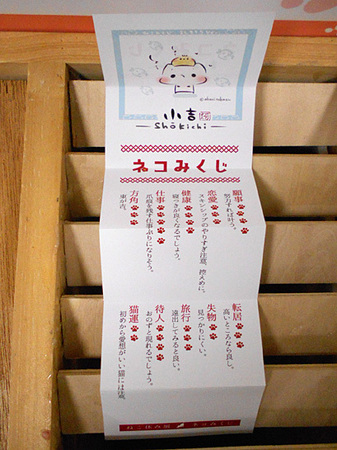 小吉
Shōkichi
ネコみくじ
願事
努力すれば叶う。
恋愛
スキンシップのやりすぎ注意。控えめに。
健康
寝つきが良くなるでしょう。
仕事
爪痕を残す仕事ぶりになりそう。
方角
東が吉。
転居
高いところなら良し。
失物
見つかりにくい。
旅行
遠出してみると良い。
待人
おのずと現れるでしょう。
猫運
初めから愛想がいい猫には注意。